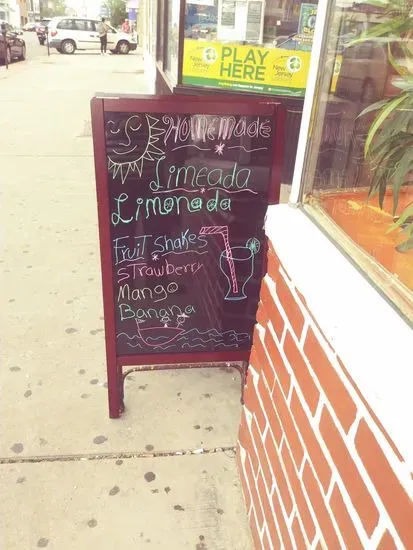 PLAY
HERE
New Jersey
HOMEMADE
Limeada
Limonada
Fruit Shakes
Strawberry
Mango
Banana